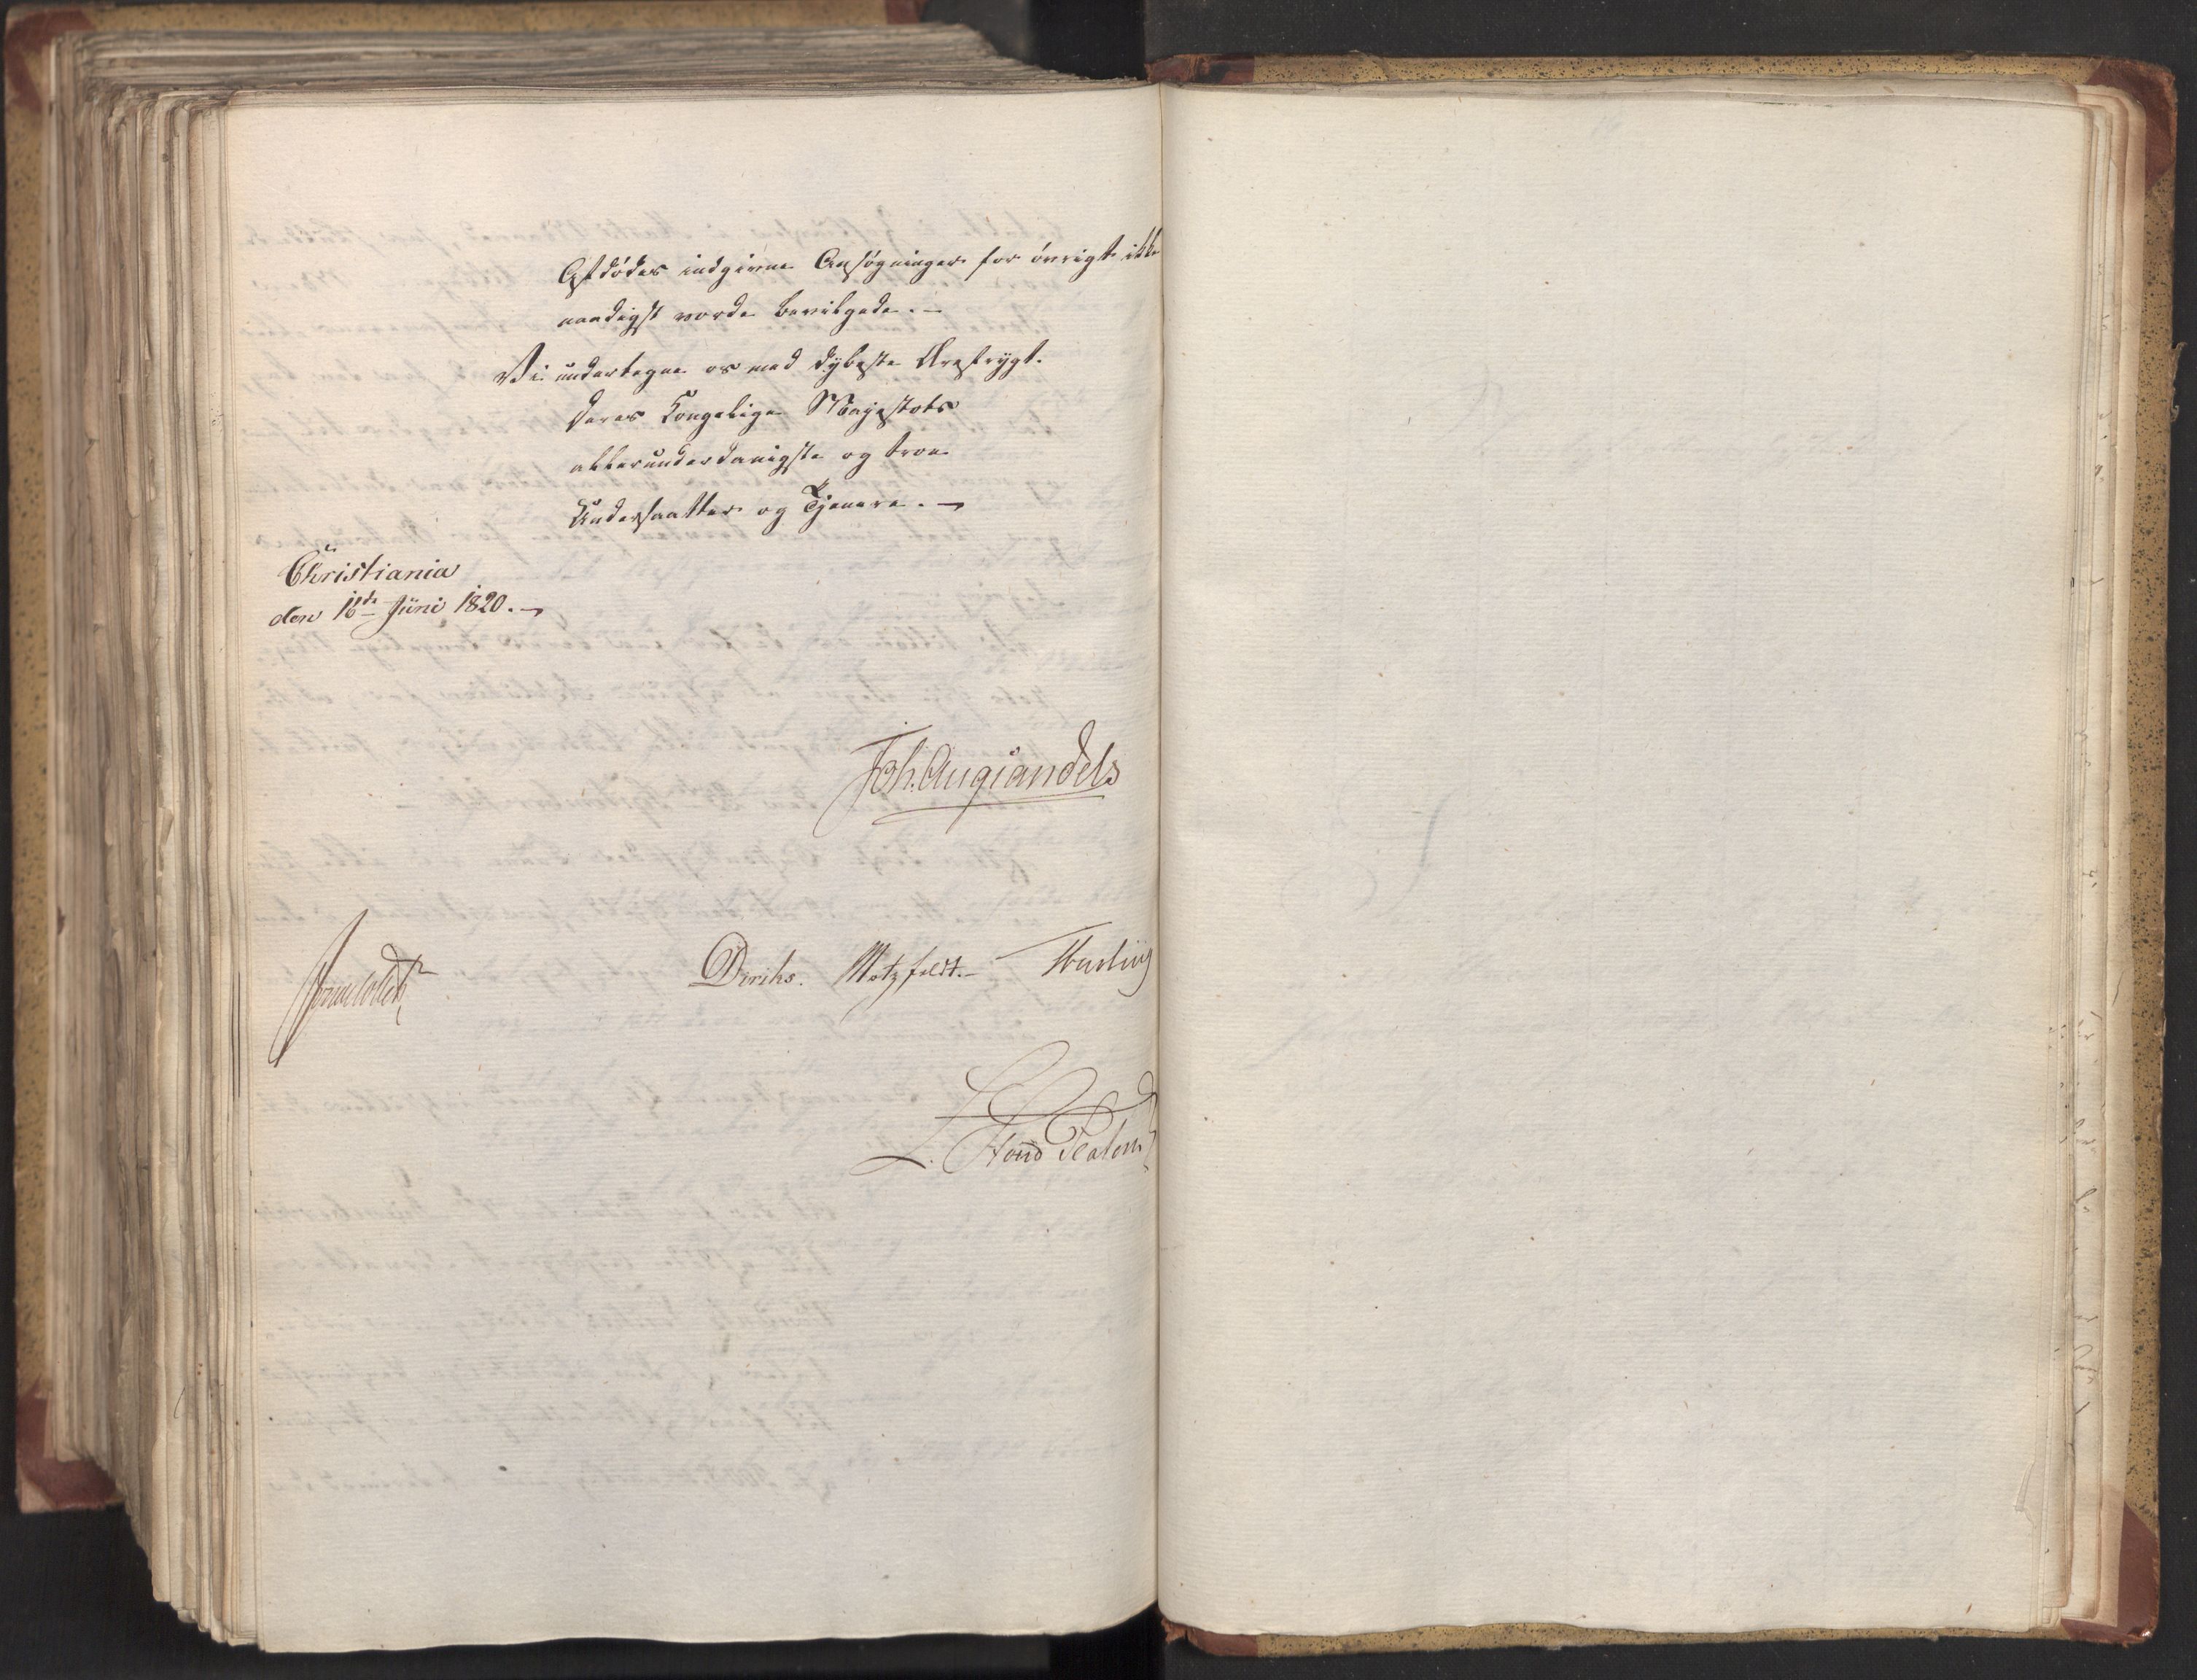 Afdødes indgivne Ansøgninger for øvrigt ikke
naadigst vorde bevilgede. –
Vi undertegne os med dybeste Ærefrygt.
Deres Kongelige Majestæts
allerunderdanigste og troe
Undersaatter og Tjenere. –
Christiania
den 16de Juni 1820. –
Joh. Aug: Sandels
Diriks. Motzfeldt. –
L.